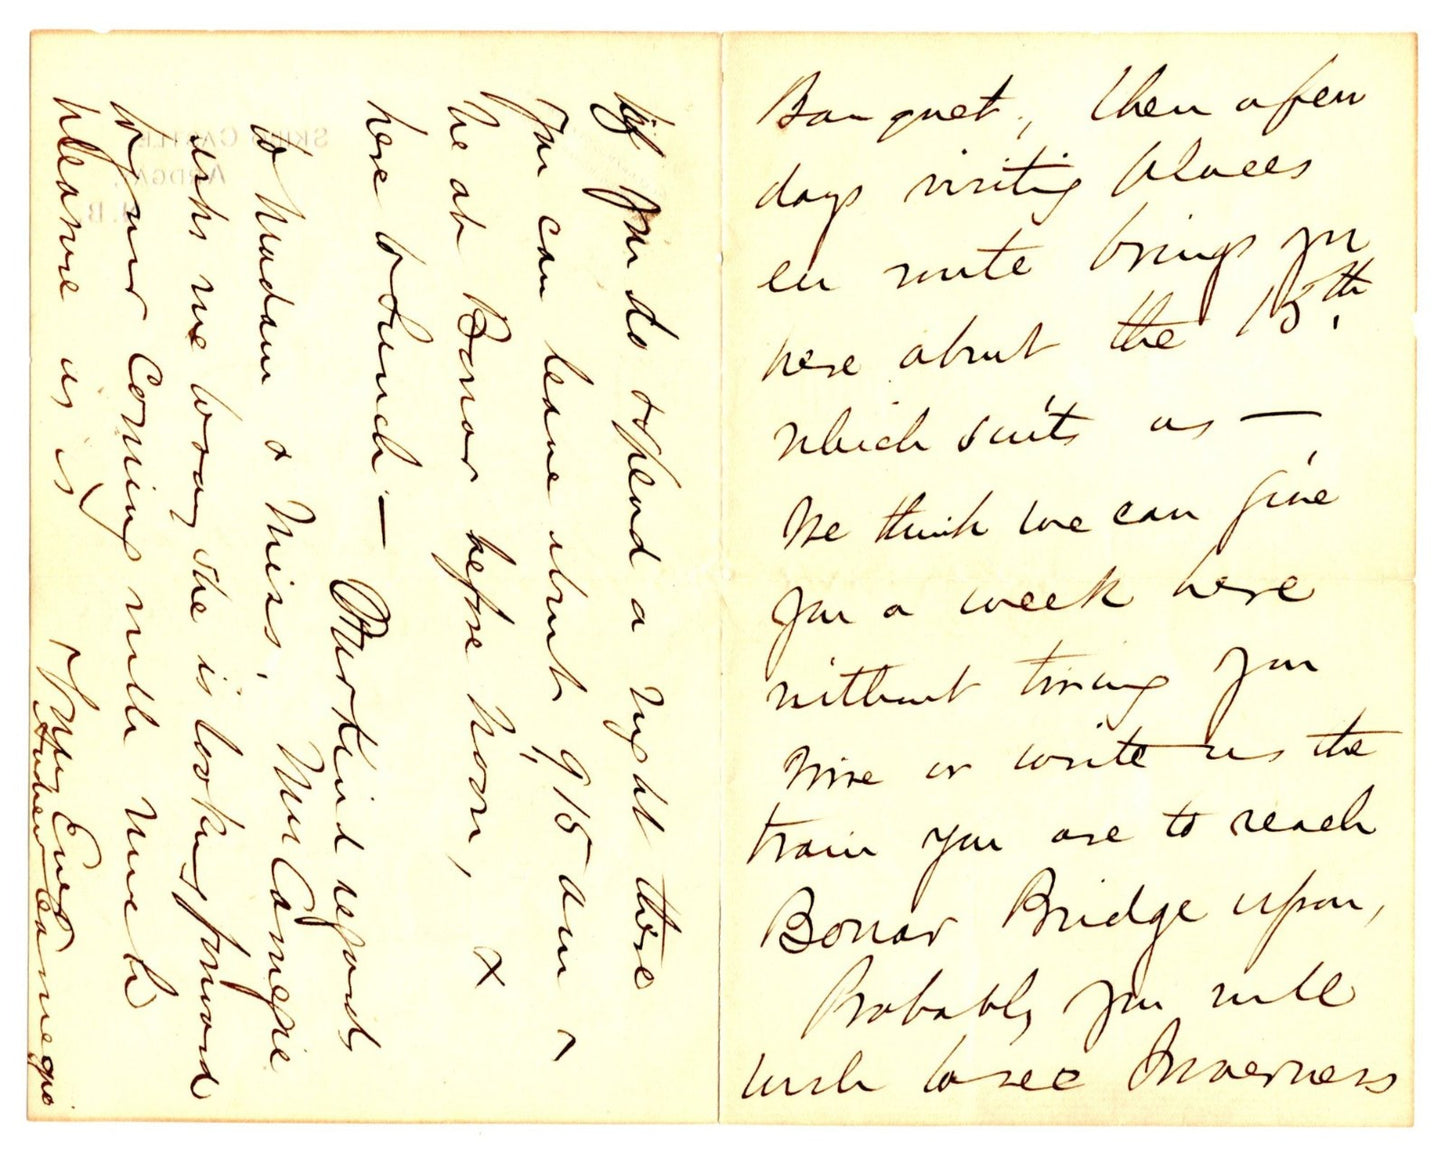 Banquet, then a few
days visiting places
en route brings you
here about the 15th.
which suits us —
We think we can give
you a week here
without tiring you
Wire or write us the
train you are to reach
Bonar Bridge upon,
Probably you will
wish to see Inverness
If you do & spend a night there
you can leave about 9/15 am &
be at Bonar before Noon, &
here to Lunch —
Our Kind regards
to Madam & Miss, Mrs Carnegie
asks me to say she is looking forward
to your coming with much
pleasure as is
Yours Ever
Andrew Carnegie
SKIBO CASTLE
ARDGAY,
N.B.